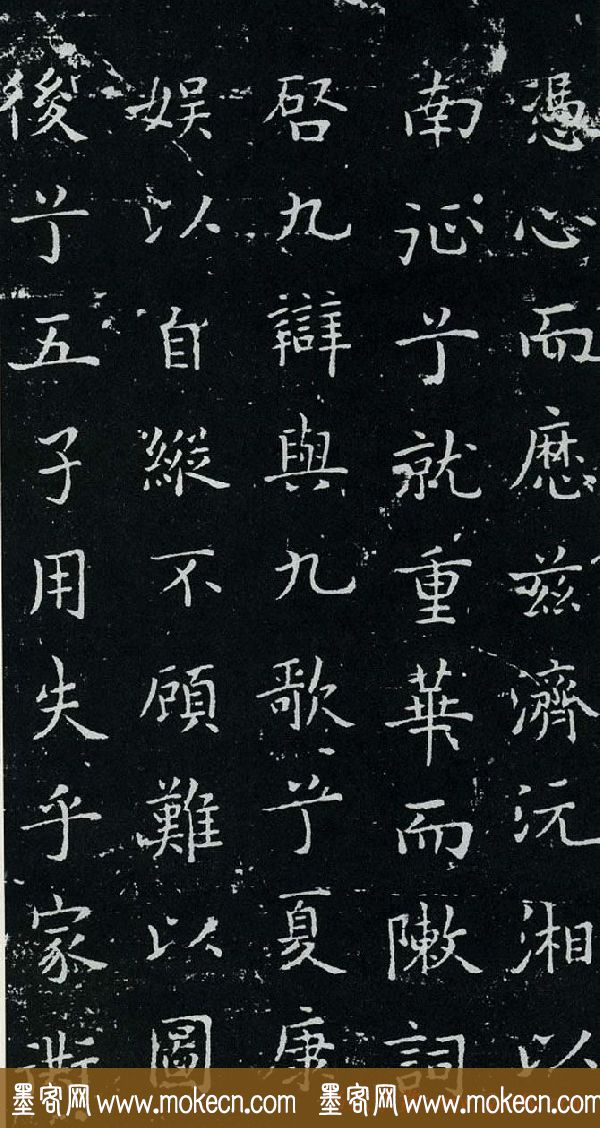 憑心而歷茲濟沅湘以
南征兮就重華而敶詞
啓九辯與九歌兮夏康
娛以自縱不顧難以圖
後兮五子用失乎家
墨客网 www.mokecn.com 墨客网 www.mokecn.com